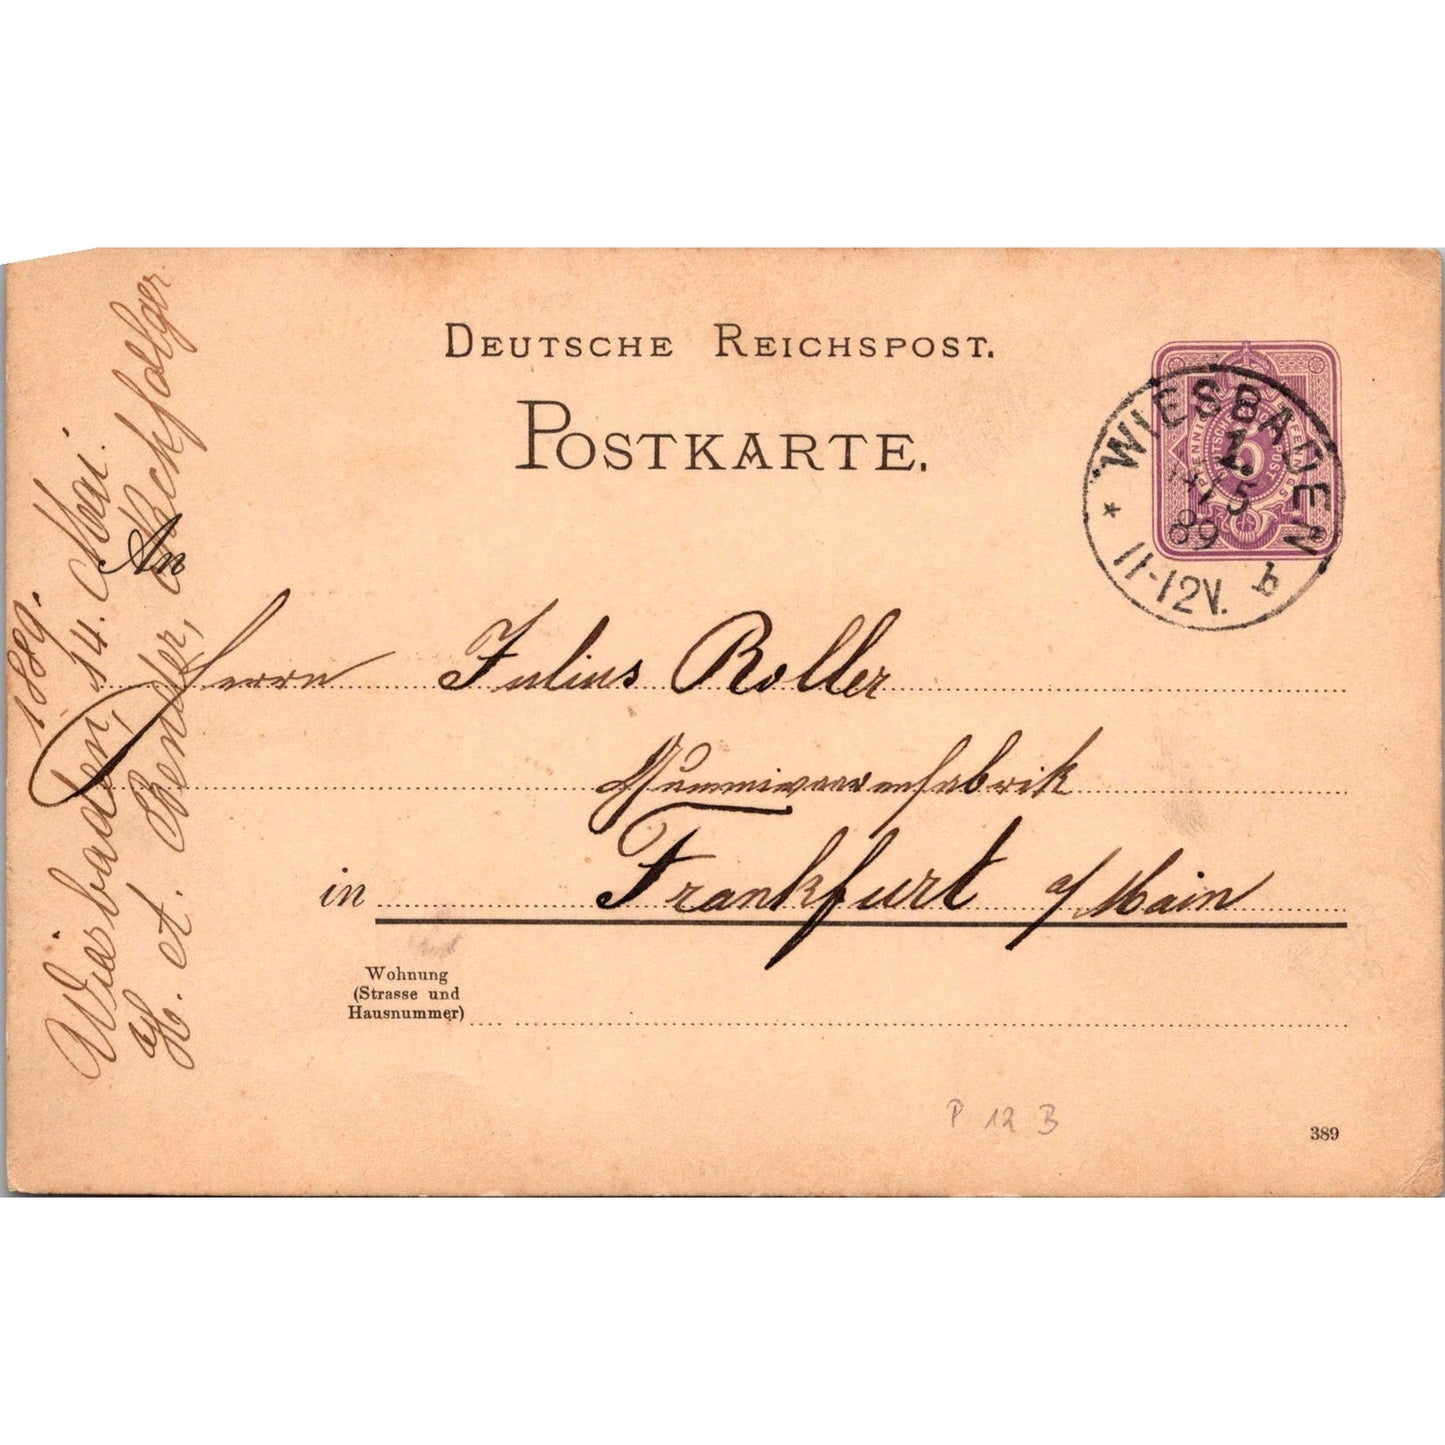 DEUTSCHE REICHSPOST.
POSTKARTE.
PFENNIG 5 PFENNIGE
WIESBADEN
14 5
89
* 11-12V. b
An
Herrn Julius Roller
Gummiwaarenfabrik
in Frankfurt a/Main
Wohnung
(Strasse und
Hausnummer)
P 12 B
389
1889.
Wiesbaden, 14. Mai.
H. Bender, Nachfolger.